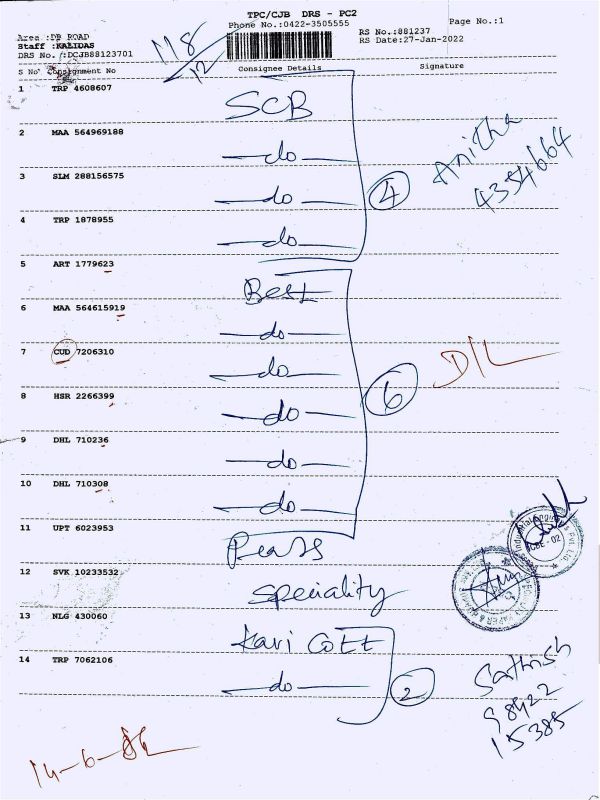 TPC/CJB DRS - PC2
Phone No.:0422-3505555
Page No.:1
Area :DB ROAD
Staff :KALIDAS
DRS No. :DCJB88123701
118/12
RS No.:881237
RS Date:27-Jan-2022
S No Consignment No Consignee Details Signature
1 TRP 4608607 SCB
2 MAA 564969188 —do—
3 SLM 288156575 —do—
4 TRP 1878955 —do—
4
Anitha
4354664
5 ART 1779623 Best
6 MAA 564615919 —do—
7 CUD 7206310 —do—
8 HSR 2266399 —do—
9 DHL 710236 —do—
10 DHL 710308 —do—
6
D/L
11 UPT 6023953
12 SVK 10233532 Speciality
13 NLG 430060 Kavi Cott
14 TRP 7062106 —do—
2
Sathish
98422
15385
14-6-